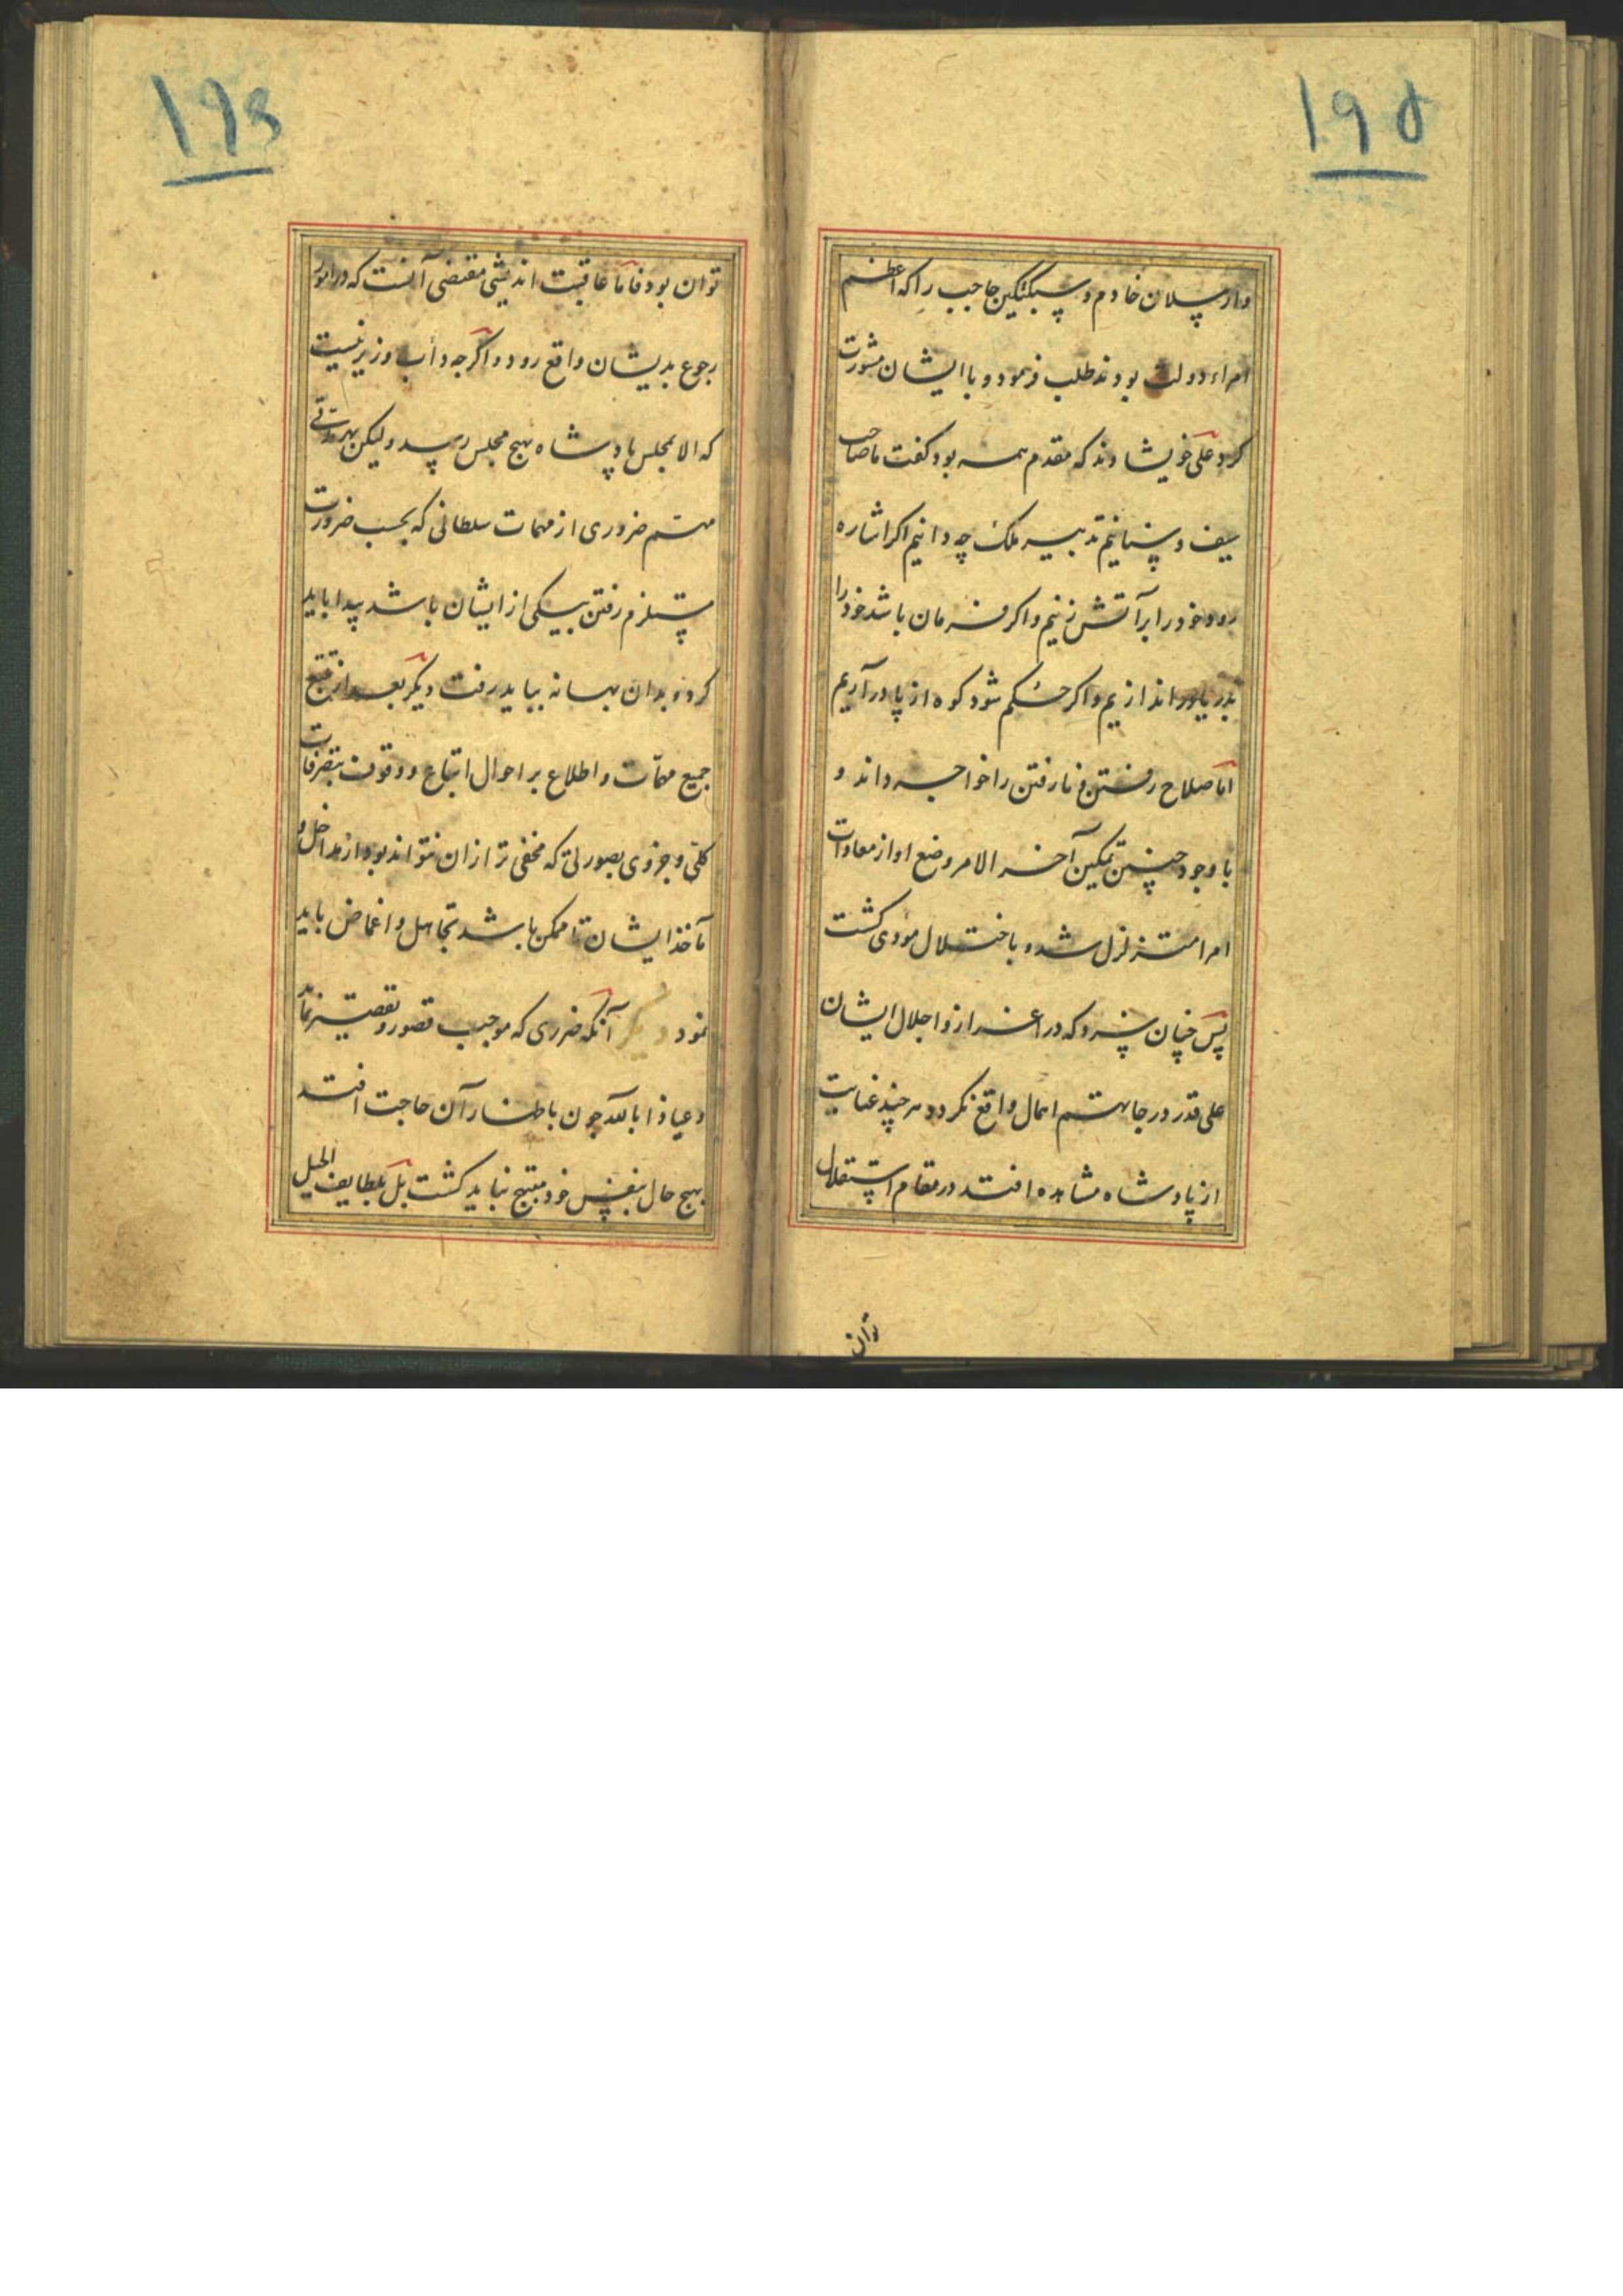 ۱۹۵
وارسلان خادم و سبکتکین حاجب را که اعظم
امراء دولت بودند طلب فرمود و با ایشان مشورت
کرد علی خویشاوند که مقدم همه بود کفت ما صاحب
سیف و سنانیم تدبیر ملک چه دانیم اکر اشاره
رود خود را بر آتش زنیم و اکر فرمان باشد خود را
بدریا در اندازیم و اکر حکم شود کوه از پا درآریم
اما صلاح رفتن و نا رفتن را خواجه داند و
با وجود چنین تمکین آخر الامر وضع او از معادات
امرا متزلزل شد و باختلال مؤدی کشت
پس چنان سزد که در اعزاز و اجلال ایشان
علی قدر درجاتهم اهمال واقع نکردد هر چند عنایت
از پادشاه مشاهده افتد در مقام استقلال
توان
۱۹۶
توان بود فاما عاقبت اندیشی مقتضی آنست که در امور
رجوع بدیشان واقع رود و اگرچه دأب وزیر نیست
که الا بمجلس پادشاه بهیچ مجلس رسد ولیکن بهر وقتی
مهم ضروری از مهمات سلطانی که بحسب ضرورت
مستلزم رفتن بیکی از ایشان باشد پیدا باید
کرد و بدان بهانه بباید رفت دیگر بعد از تتبع
جمیع مهمات و اطلاع بر احوال اتباع و وقوف بتصرفات
کلی و جزوی بصورتی که مخفی تر ازان نتواند بود از مداخل و
مآخذ ایشان تا ممکن باشد تجاهل و اغماض باید
نمود دیگر آنکه ضرری که موجب قصور و تقصیر نماید
و عیاذا بالله چون باظهار آن حاجت افتد
بهیچ حال بنفس خود مبتهج نباید کشت بل بلطایف الحیل